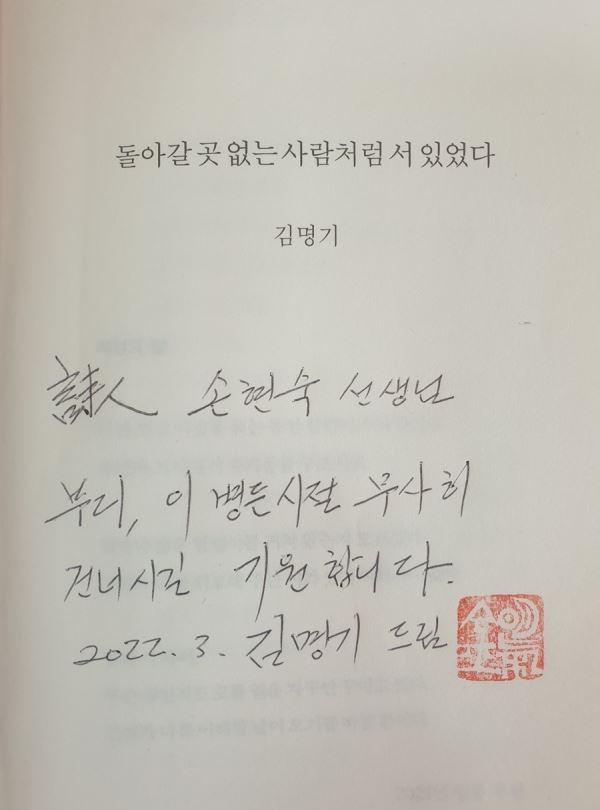 돌아갈 곳 없는 사람처럼 서 있었다
김명기
詩人 손현숙 선생님
부디, 이 병든시절 무사히
건너시길 기원합니다.
2022. 3. 김명기 드림